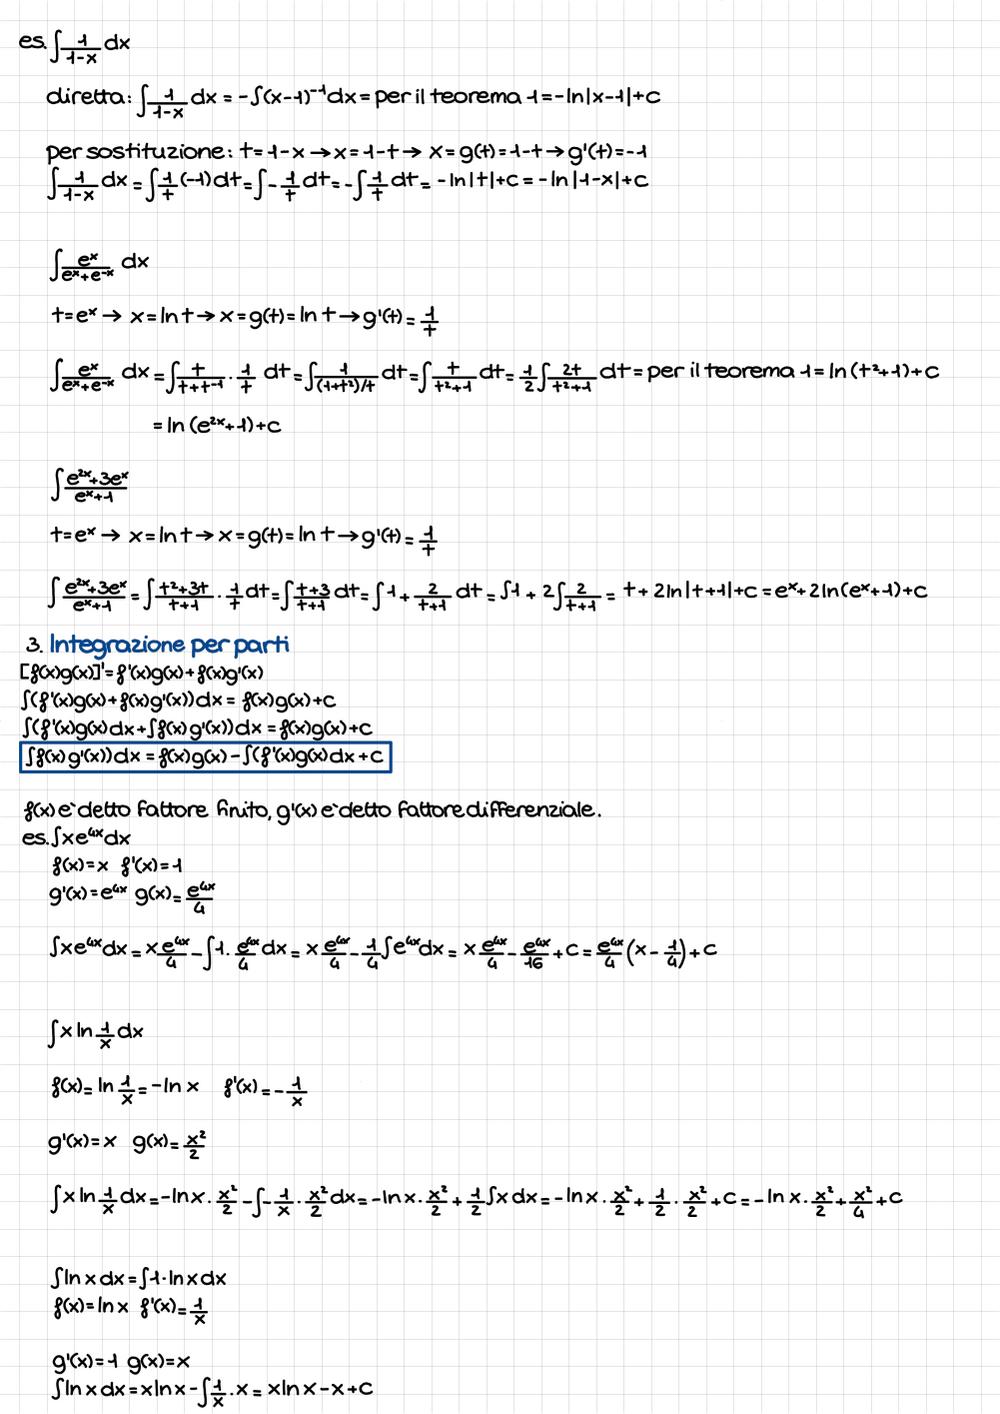 es. ∫ 1/(1-x) dx
diretta: ∫ 1/(1-x) dx = -∫(x-1)⁻¹dx = per il teorema 1 = -ln|x-1|+c
per sostituzione: t=1-x → x=1-t → x=g(t)=1-t → g'(t)=-1
∫ 1/(1-x) dx = ∫ 1/t (-1)dt = ∫ - 1/t dt = -∫ 1/t dt = -ln|t|+c = -ln|1-x|+c
∫ eˣ/(eˣ+e⁻ˣ) dx
t=eˣ → x=ln t → x=g(t)=ln t → g'(t)= 1/t
∫ eˣ/(eˣ+e⁻ˣ) dx = ∫ t/(t+t⁻¹) · 1/t dt = ∫ 1/((1+t²)/t) dt = ∫ t/(t²+1) dt = 1/2 ∫ 2t/(t²+1) dt = per il teorema 1 = ln(t²+1)+c
= ln(e²ˣ+1)+c
∫ (e²ˣ+3eˣ)/(eˣ+1)
t=eˣ → x=ln t → x=g(t)=ln t → g'(t)= 1/t
∫ (e²ˣ+3eˣ)/(eˣ+1) = ∫ (t²+3t)/(t+1) · 1/t dt = ∫ (t+3)/(t+1) dt = ∫1+ 2/(t+1) dt = ∫1 + 2∫ 2/(t+1) = t+2ln|t+1|+c = eˣ+2ln(eˣ+1)+c
3. Integrazione per parti
[f(x)g(x)]'=f'(x)g(x)+f(x)g'(x)
∫(f'(x)g(x)+f(x)g'(x))dx = f(x)g(x)+c
∫(f'(x)g(x)dx+∫f(x)g'(x))dx = f(x)g(x)+c
∫f(x)g'(x))dx = f(x)g(x)-∫(f'(x)g(x)dx+c
f(x) e` detto fattore finito, g'(x) e` detto fattore differenziale.
es. ∫xe⁴ˣdx
f(x)=x f'(x)=1
g'(x)=e⁴ˣ g(x)= e⁴ˣ/4
∫xe⁴ˣdx = x e⁴ˣ/4 - ∫1· e⁴ˣ/4 dx = x e⁴ˣ/4 - 1/4 ∫e⁴ˣdx = x e⁴ˣ/4 - e⁴ˣ/16 +c = e⁴ˣ/4 (x- 1/4)+c
∫x ln 1/x dx
f(x)= ln 1/x = -ln x f'(x)=- 1/x
g'(x)=x g(x)= x²/2
∫x ln 1/x dx = -lnx· x²/2 - ∫- 1/x · x²/2 dx = -ln x· x²/2 + 1/2 ∫x dx = -ln x· x²/2 + 1/2 · x²/2 +c = -ln x· x²/2 + x²/4 +c
∫ln x dx = ∫1·ln x dx
f(x)=ln x f'(x)= 1/x
g'(x)=1 g(x)=x
∫ln x dx = xln x-∫ 1/x ·x = xln x-x+c